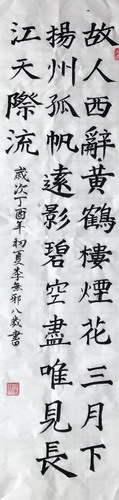 故人西辭黃鶴樓煙花三月下
揚州孤帆遠影碧空盡唯見長
江天際流
歲次丁酉年初夏李無邪八歲書